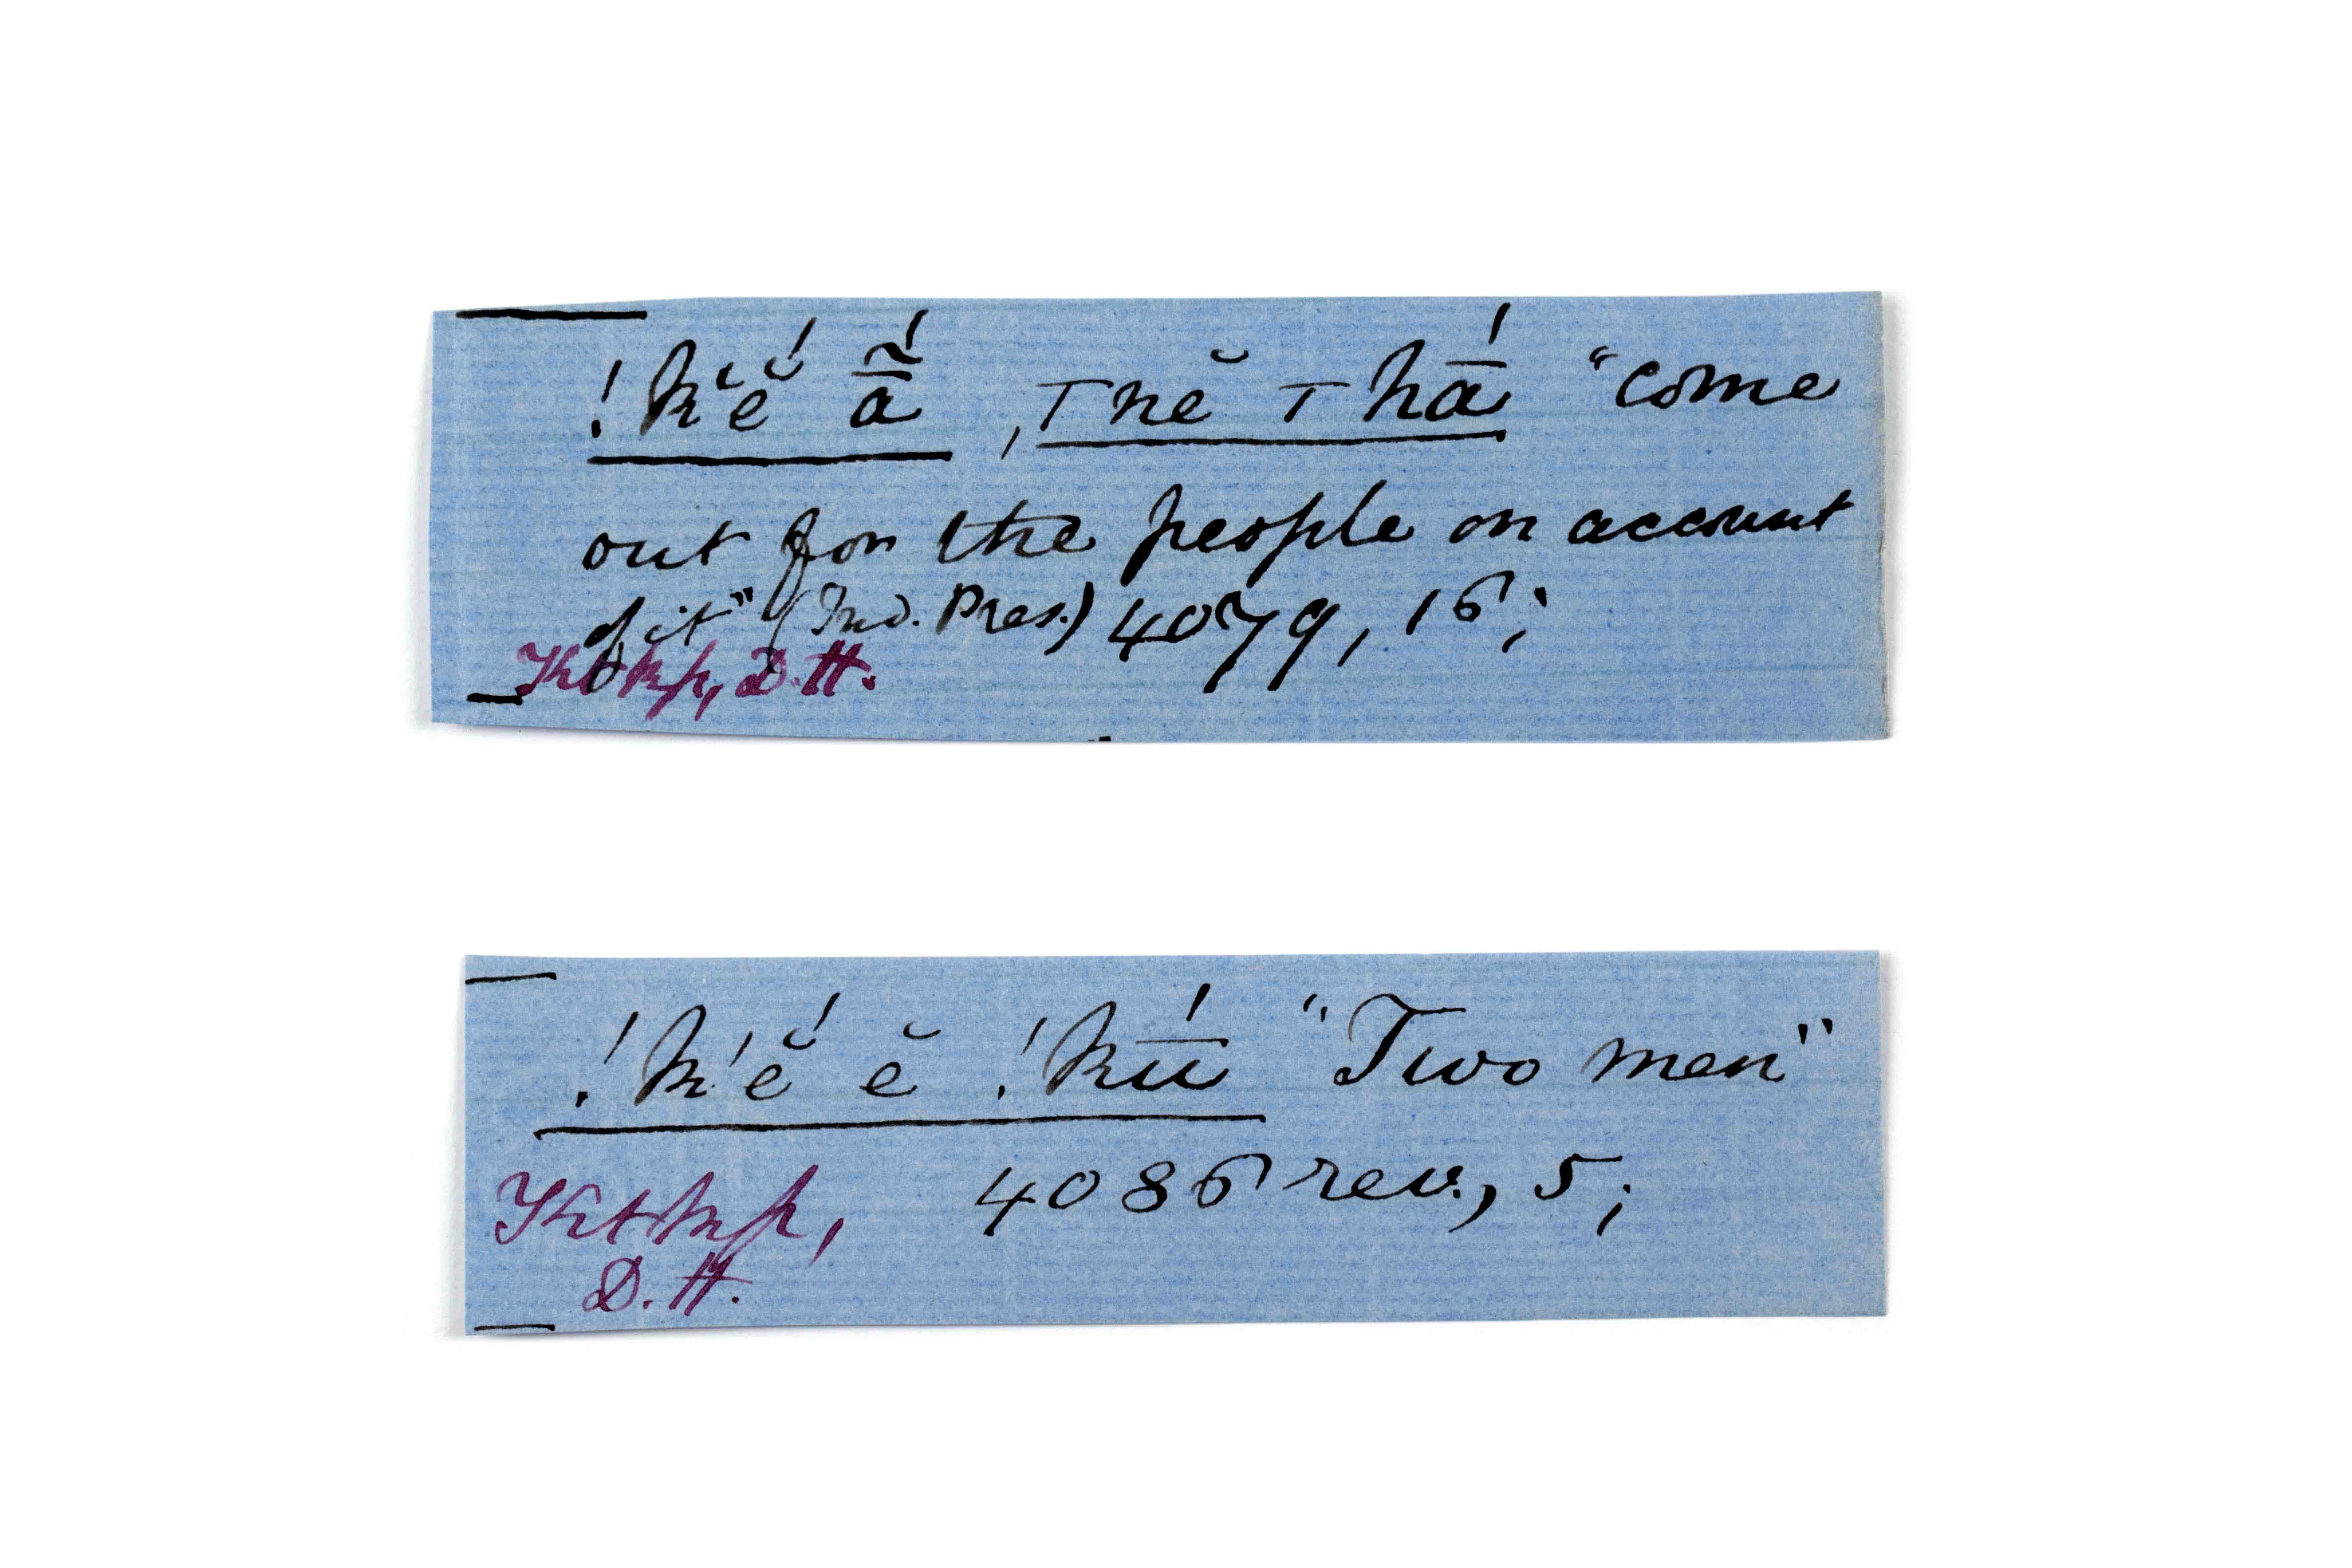 !kʻĕ́ ā̃́, ꞱnĕꞱhā́ "come
out for the people on account
of it" (Ind. Pres.) 4079, 16;
Ktkkp, D.H.
!kʻĕ́ ĕ !kú̄ "Two men"
4086 rev., 5;
Ktkkp,
D.H.